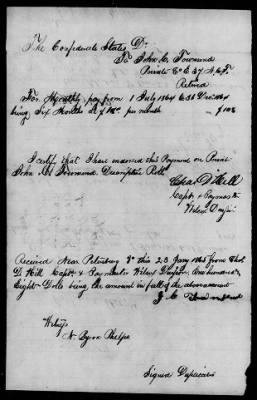 The Confederate States Dr
To John C. Townsend
Private Co E 37 N.C.T.
Retired
For Monthly pay from 1 July 1864 to 31 Dec 1864
being Six Months at $18 per month $108
I certify that I have endorsed this Payment on Private
John Townsend Descriptive Roll.
Chas D Hill
Capt & Paymaster
Wilcox Division
Received Near Petersburg Va this 23 Jany 1865 from Chas
D. Hill Capt & Paymaster Wilcox Division One hundred &
Eight Dolls being the amount in full of the above account
J. C. Townsend
Witness
Byron Phelps
Signed Duplicates